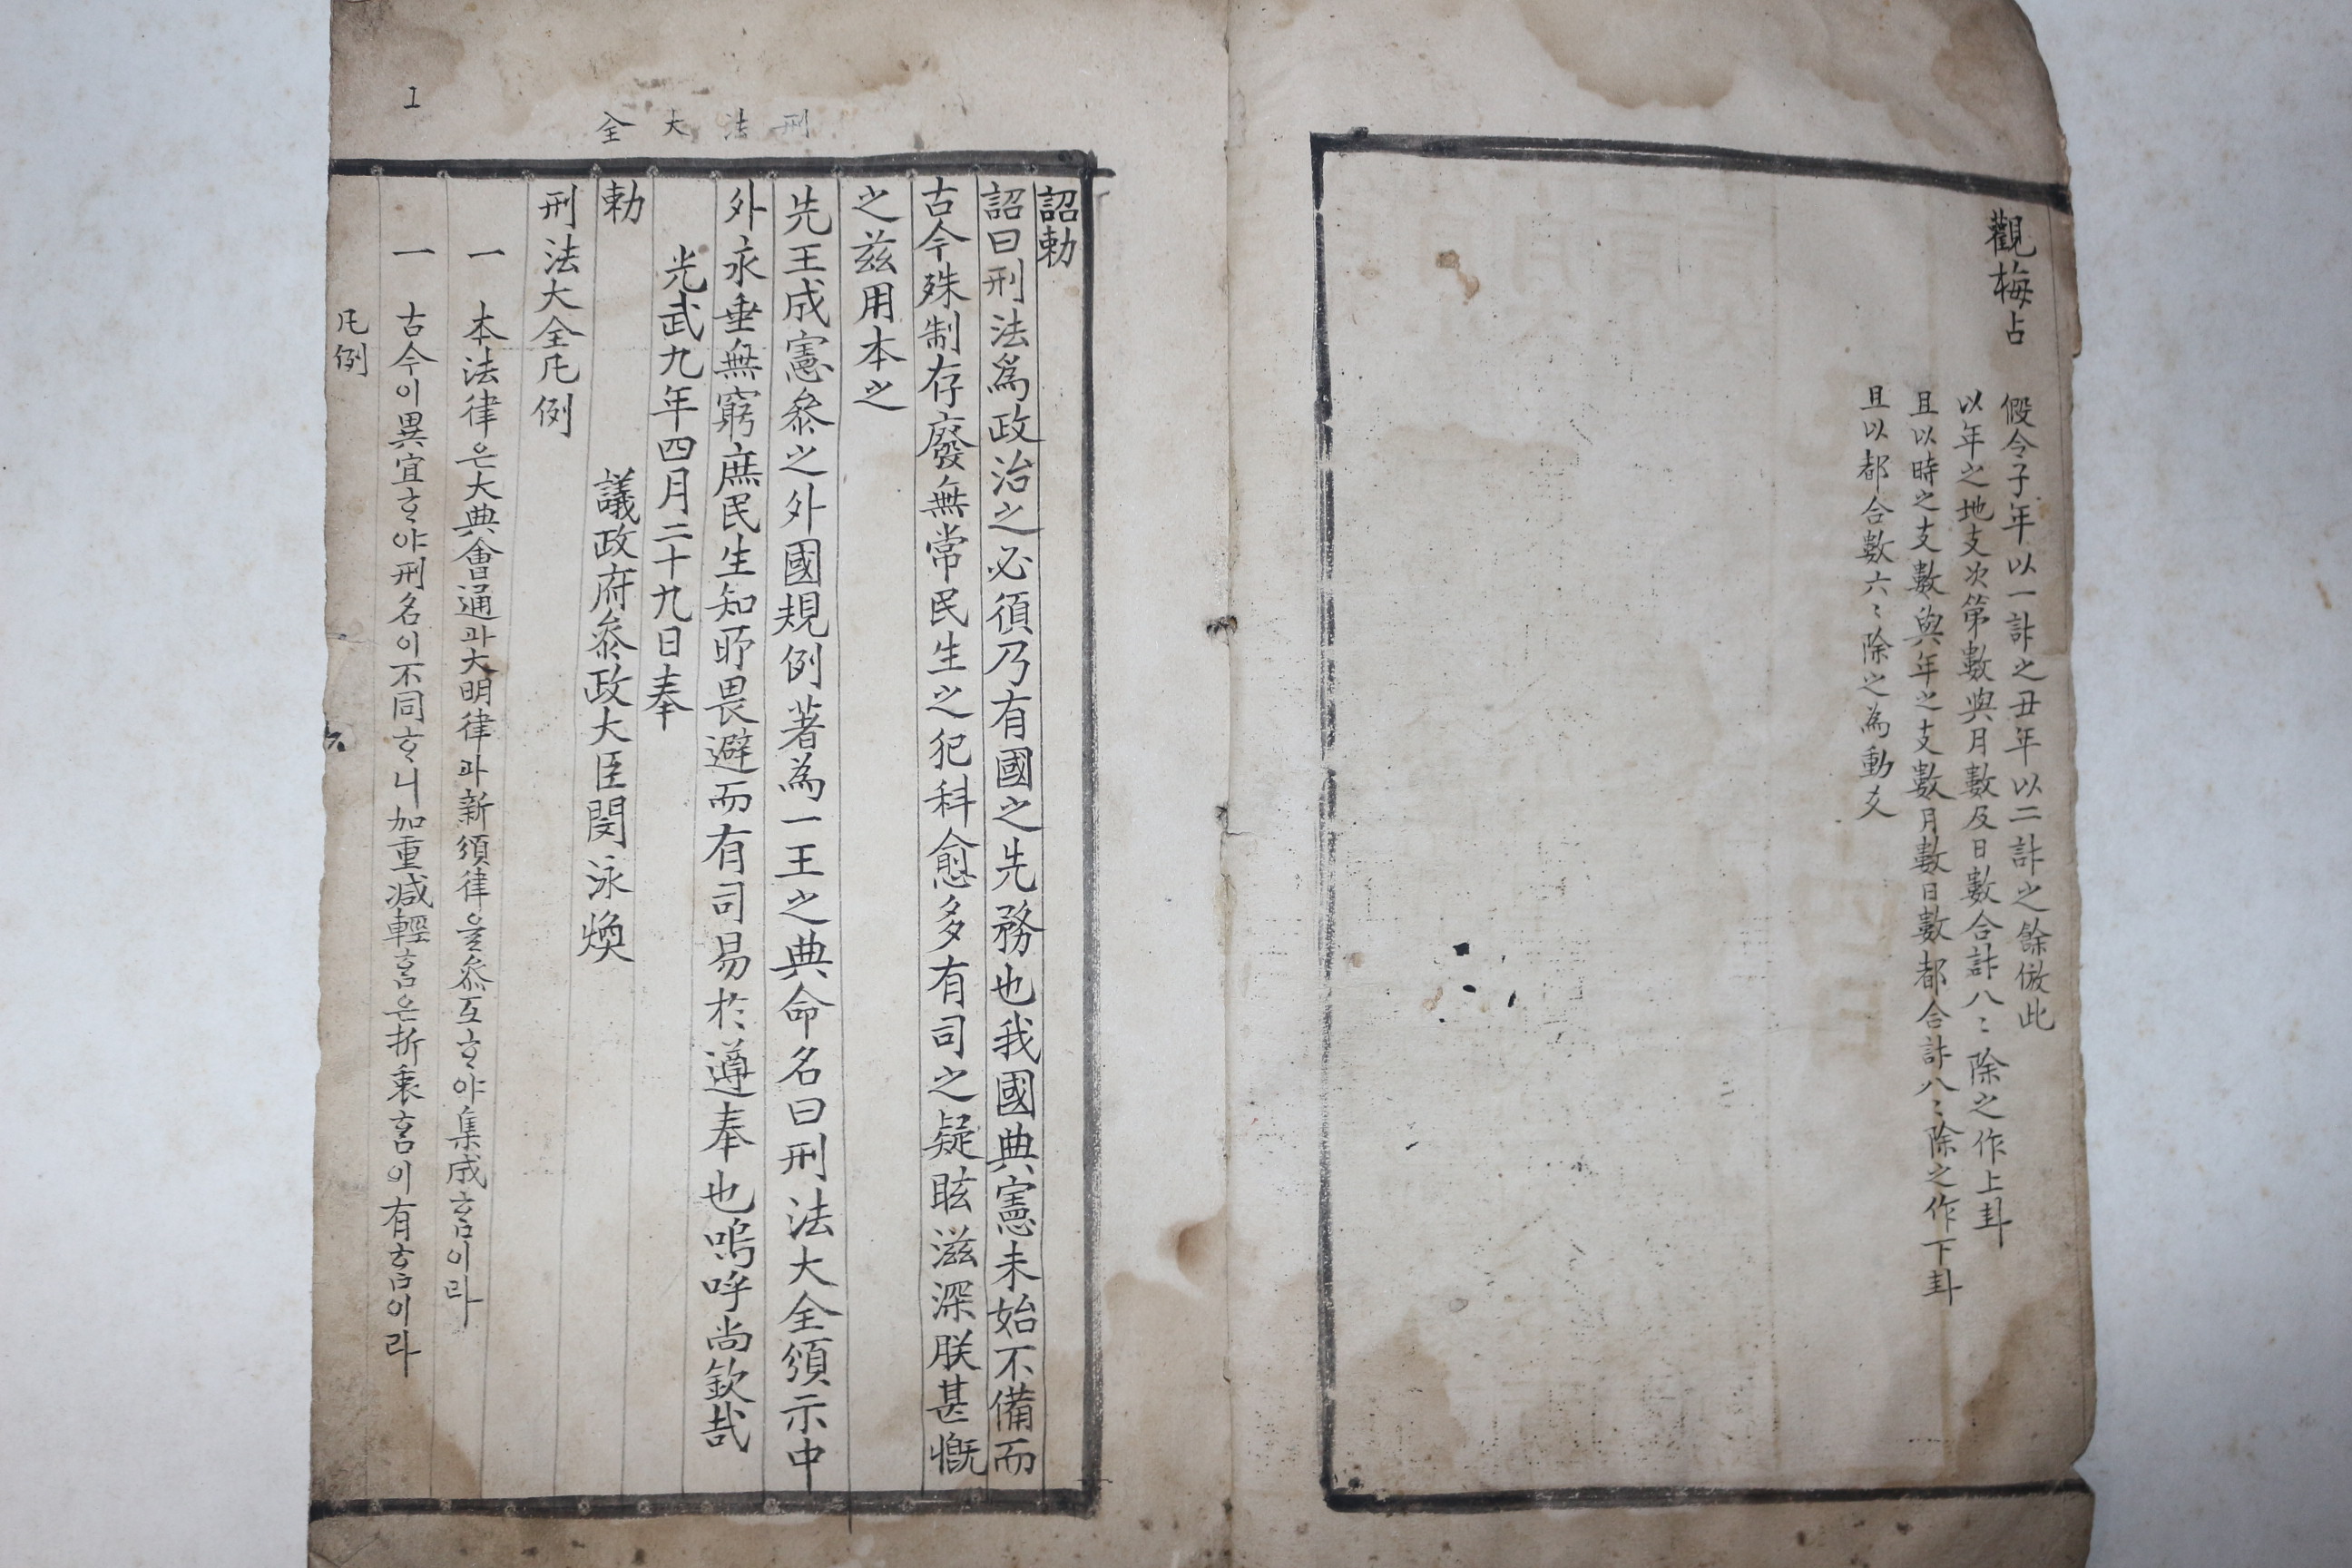 觀梅占
假令子年以一計之丑年以二計之餘倣此
以年之地支次第數與月數及日數合計八〻除之作上卦
且以時之支數與年之支數月數日數都合計八〻除之作下卦
且以都合數六〻除之為動爻
刑法大全
1
詔勅
詔曰刑法爲政治之必須乃有國之先務也我國典憲未始不備而
古今殊制存廢無常民生之犯科愈多有司之疑眩滋深朕甚慨
之玆用本之
先王成憲叅之外國規例著為一王之典命名曰刑法大全須示中
外永垂無窮庶民生知所畏避而有司易於遵奉也嗚呼尚欽哉
光武九年四月二十九日奉
勅
議政府叅政大臣閔泳煥
刑法大全凡例
一 本法律은大典會通과大明律과新頒律을叅互ᄒᆞ야集成ᄒᆞᆷ이라
一 古今이異宜ᄒᆞ야刑名이不同ᄒᆞ니加重減輕ᄒᆞᆷ은折衷ᄒᆞᆷ이有ᄒᆞᆷ이라
凡例